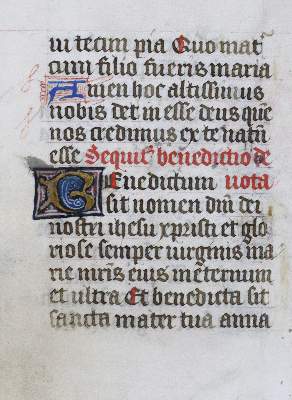 in tecum pia Quo mat
cum filio fueris maria
Amen hoc altissimus
nobis det in esse deus que
nos credimus ex te natū
esse Sequit᷑ benedictio de
Benedictum nota
sit nomen dn̄i dei
nostri ihesu xpristi et glo
riose semper uirginis ma
rie mr̄is eius in eternum
et ultra Et benedicta sit
sancta mater tua anna